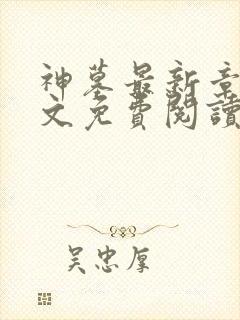 神墓最新章
文免費閱讀
吳忠厚